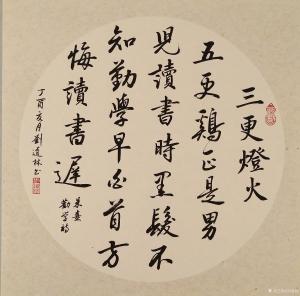 三更燈火
五更鷄正是男
児讀書時黑髮不
知勤學早白首方
悔讀書遲
朱熹
丁酉亥月劉道林书